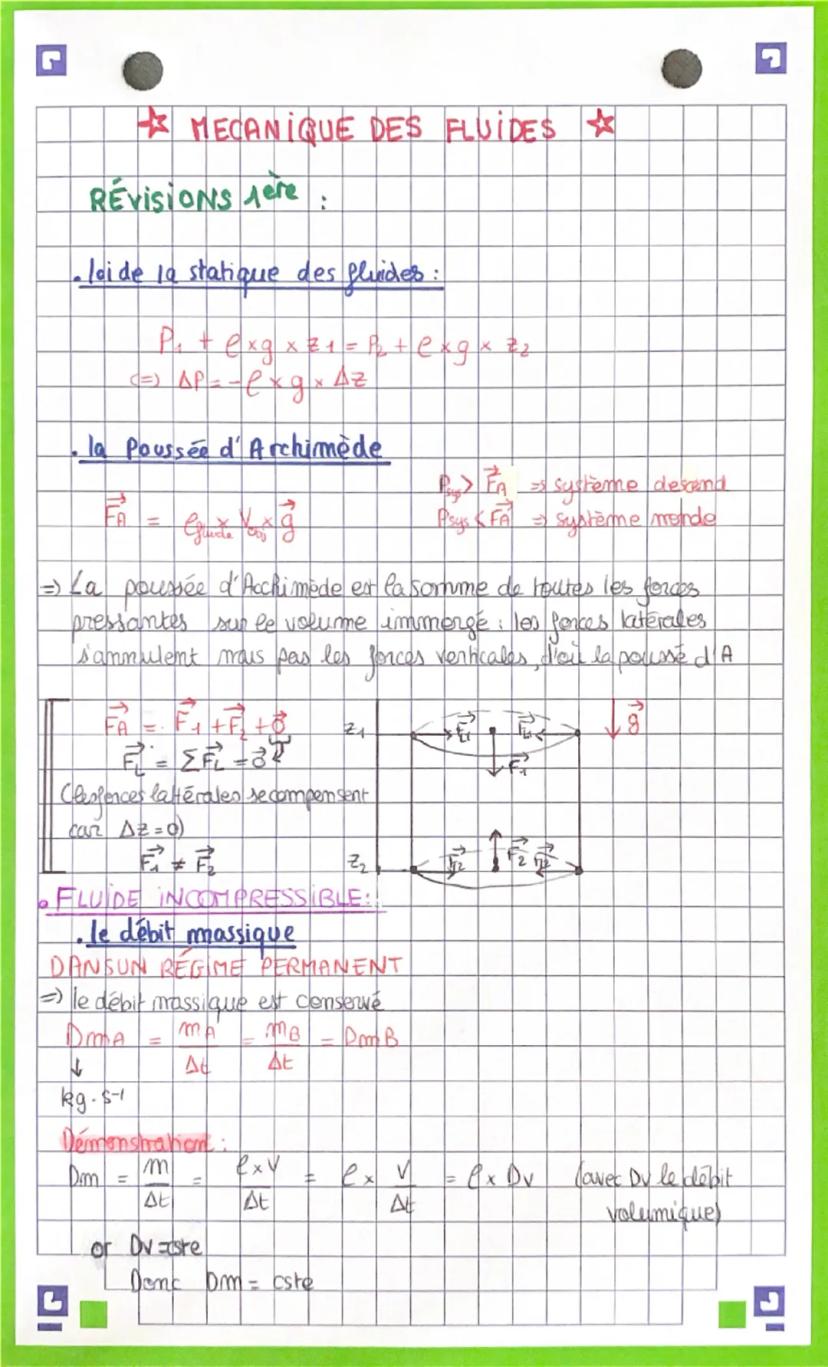 ☆ MECANIQUE DES FLUIDES ☆
RÉVISIONS 1ère :
. loi de la statique des fluides :
P1 + ρ x g x z1 = P2 + ρ x g x z2
<=> ΔP = - ρ x g x Δz
. la Poussée d'Archimède
Psys > F⃗A => système descend
F⃗A = ρfluide x V x g⃗
Psys < F⃗A => système monde
=> La poussée d'Acchimède est la somme de toutes les forces
pressantes sur le volume immergé : les forces latérales
s'ammulent mais pas les forces verticales, d'où la poussé d'A
F⃗A = F⃗1 + F⃗2 + 0⃗
F⃗L = ΣF⃗L = 0⃗
(les forces lattérales se compensent
car Δz = 0)
F⃗1 ≠ F⃗2
z1 F⃗1 g⃗
z2 F⃗2
. FLUIDE INCOMPRESSIBLE :
. le débit massique
DANS UN RÉGIME PERMANENT
=> le débit massique est conservé
DmA = mA/Δt = mB/Δt = DmB
↓
kg.s-1
Démonstration :
Dm = m/Δt = ρxV/Δt = ρ x V/Δt = ρ x Dv (avec Dv le débit
volumique)
or Dv = cste
Donc Dm = cste